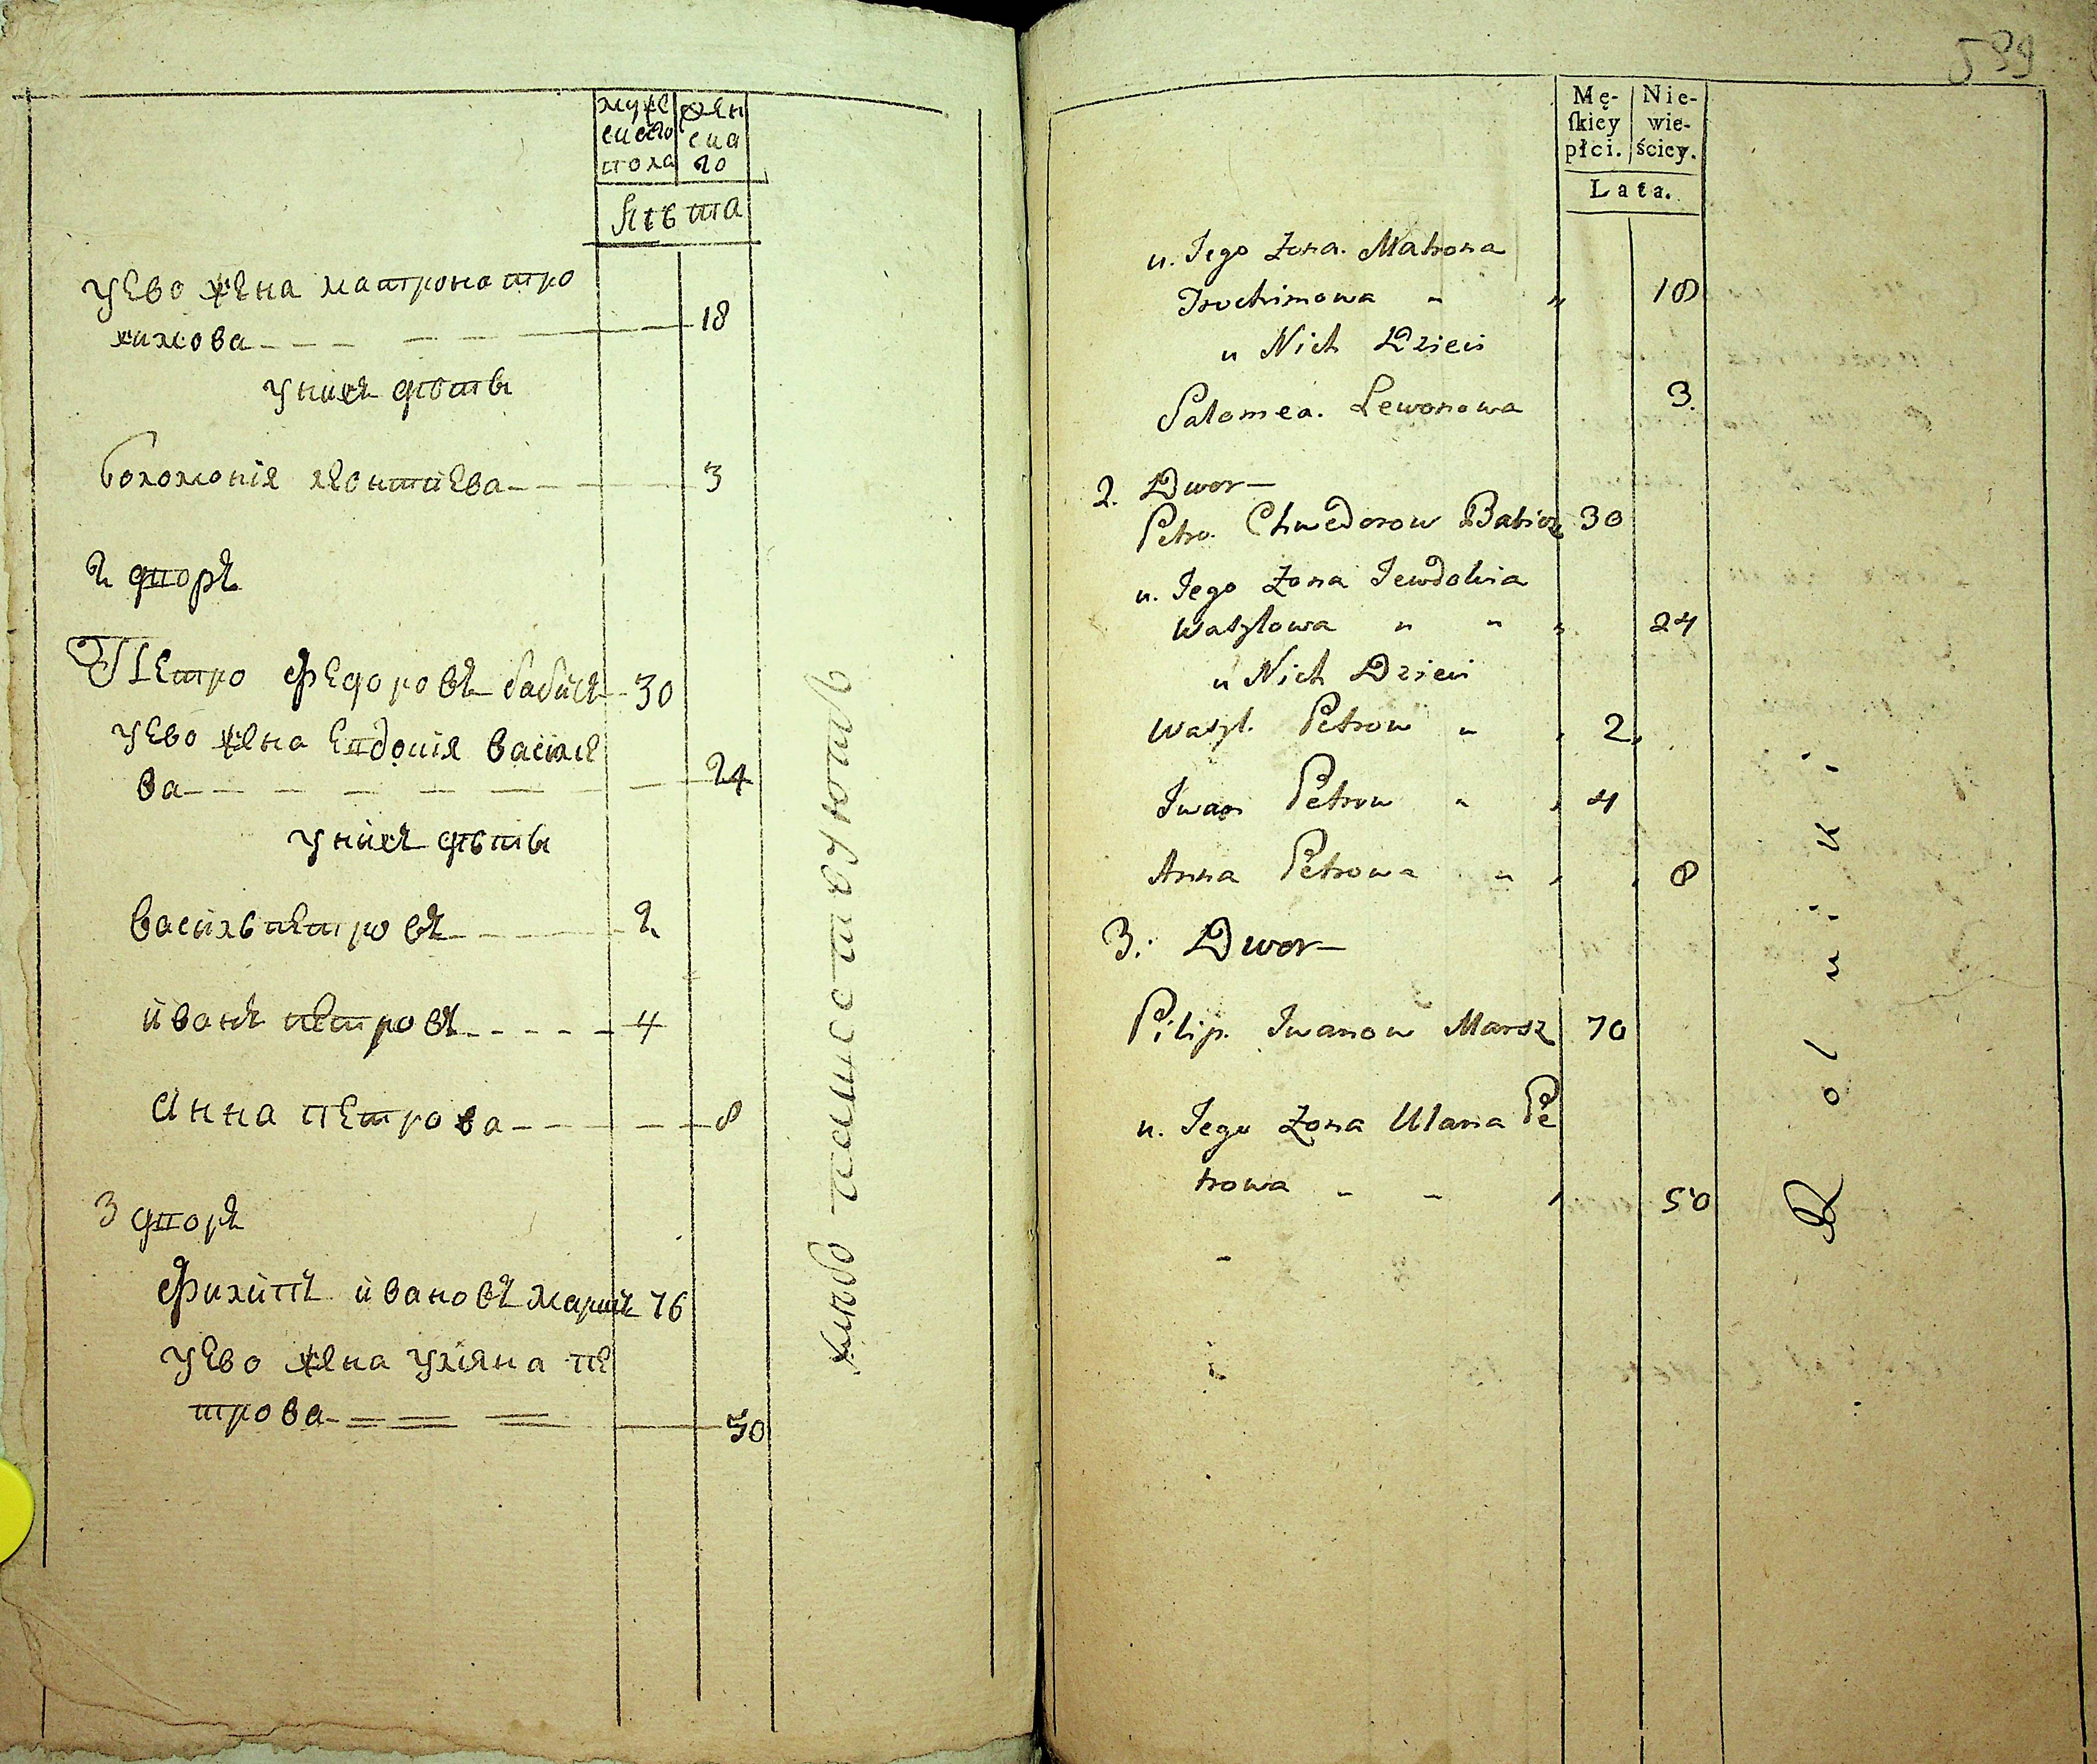 муже
ского
пола
жен
ска
го
Лѣта
у ево жена матрона тро
химова 18
у нихъ дѣти
Соломонія леонтиева 3
2 дворъ
Петро Федоровъ бабичъ 30
у ево жена Евдокія василе
ва 24
у нихъ дѣти
василь петровъ 2
иванъ петровъ 4
Анна петрова 8
3 дворъ
Филипъ ивановъ маршъ 76
у ево жена уліяна пе
трова 50
хлѣбо пашествуютъ
599
Mę-
skiey
płci.
Nie-
wie-
ściey.
Lata.
u. Jego Zona. Matrona
Trochimowa " " 18
u Nich Dzieci
Salomea. Lewonowa 3.
2. Dwor
Petro. Chwedorow Babicz 30
u. Jego Zona Jewdokia
Wasylowa " " " 24
u Nich Dzieci
Wasyl. Petrow " 2
Iwan Petrow " 4
Anna Petrowa " 8
3. Dwor
Pilip. Iwanow Marsz 70
u. Jego Zona Ulana Pe
trowa - - 50
Rolniki.